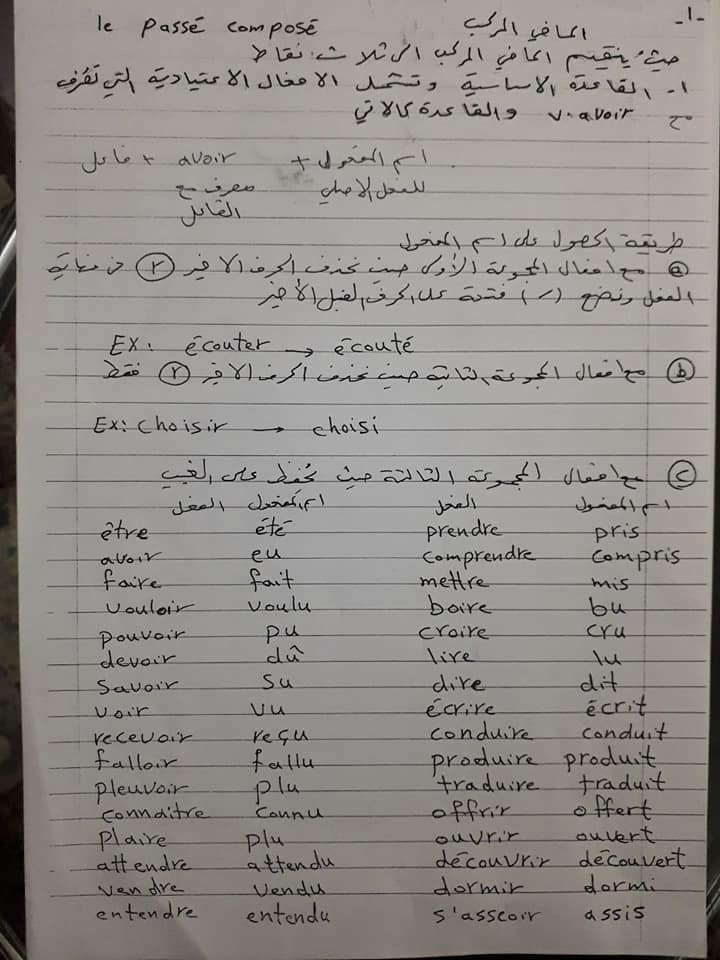 -1-
الماضي المركب le Passé composé
حيث ينقسم الماضي المركب الى ثلاث نقاط
1- القاعدة الاساسية وتشمل الافعال الاعتيادية التي تُصرف
مع v. avoir والقاعدة كالاتي
اسم المفعول + avoir + فاعل
للفعل الاصلي مصرف مع
الفاعل
طريقة الحصول على اسم المفعول
ⓐ مع افعال المجموعة الأولى حيث نحذف الحرف الاخير (r) من نهاية
الفعل ونضع (´) فتحة على الحرف لقبل الأخير
Ex: écouter → écouté
ⓑ مع افعال المجموعة الثانية حيث نحذف الحرف الاخير (r) فقط
Ex: choisir → choisi
ⓒ مع افعال المجموعة الثالثة حيث تُحفظ على الغيب
اسم المفعول الفعل اسم المفعول الفعل
être été prendre pris
avoir eu comprendre compris
faire fait mettre mis
vouloir voulu boire bu
pouvoir pu croire cru
devoir dû lire lu
savoir su dire dit
voir vu écrire écrit
recevoir reçu conduire conduit
falloir fallu produire produit
pleuvoir plu traduire traduit
connaitre connu offrir offert
plaire plu ouvrir ouvert
attendre attendu découvrir découvert
vendre vendu dormir dormi
entendre entendu s'asseoir assis